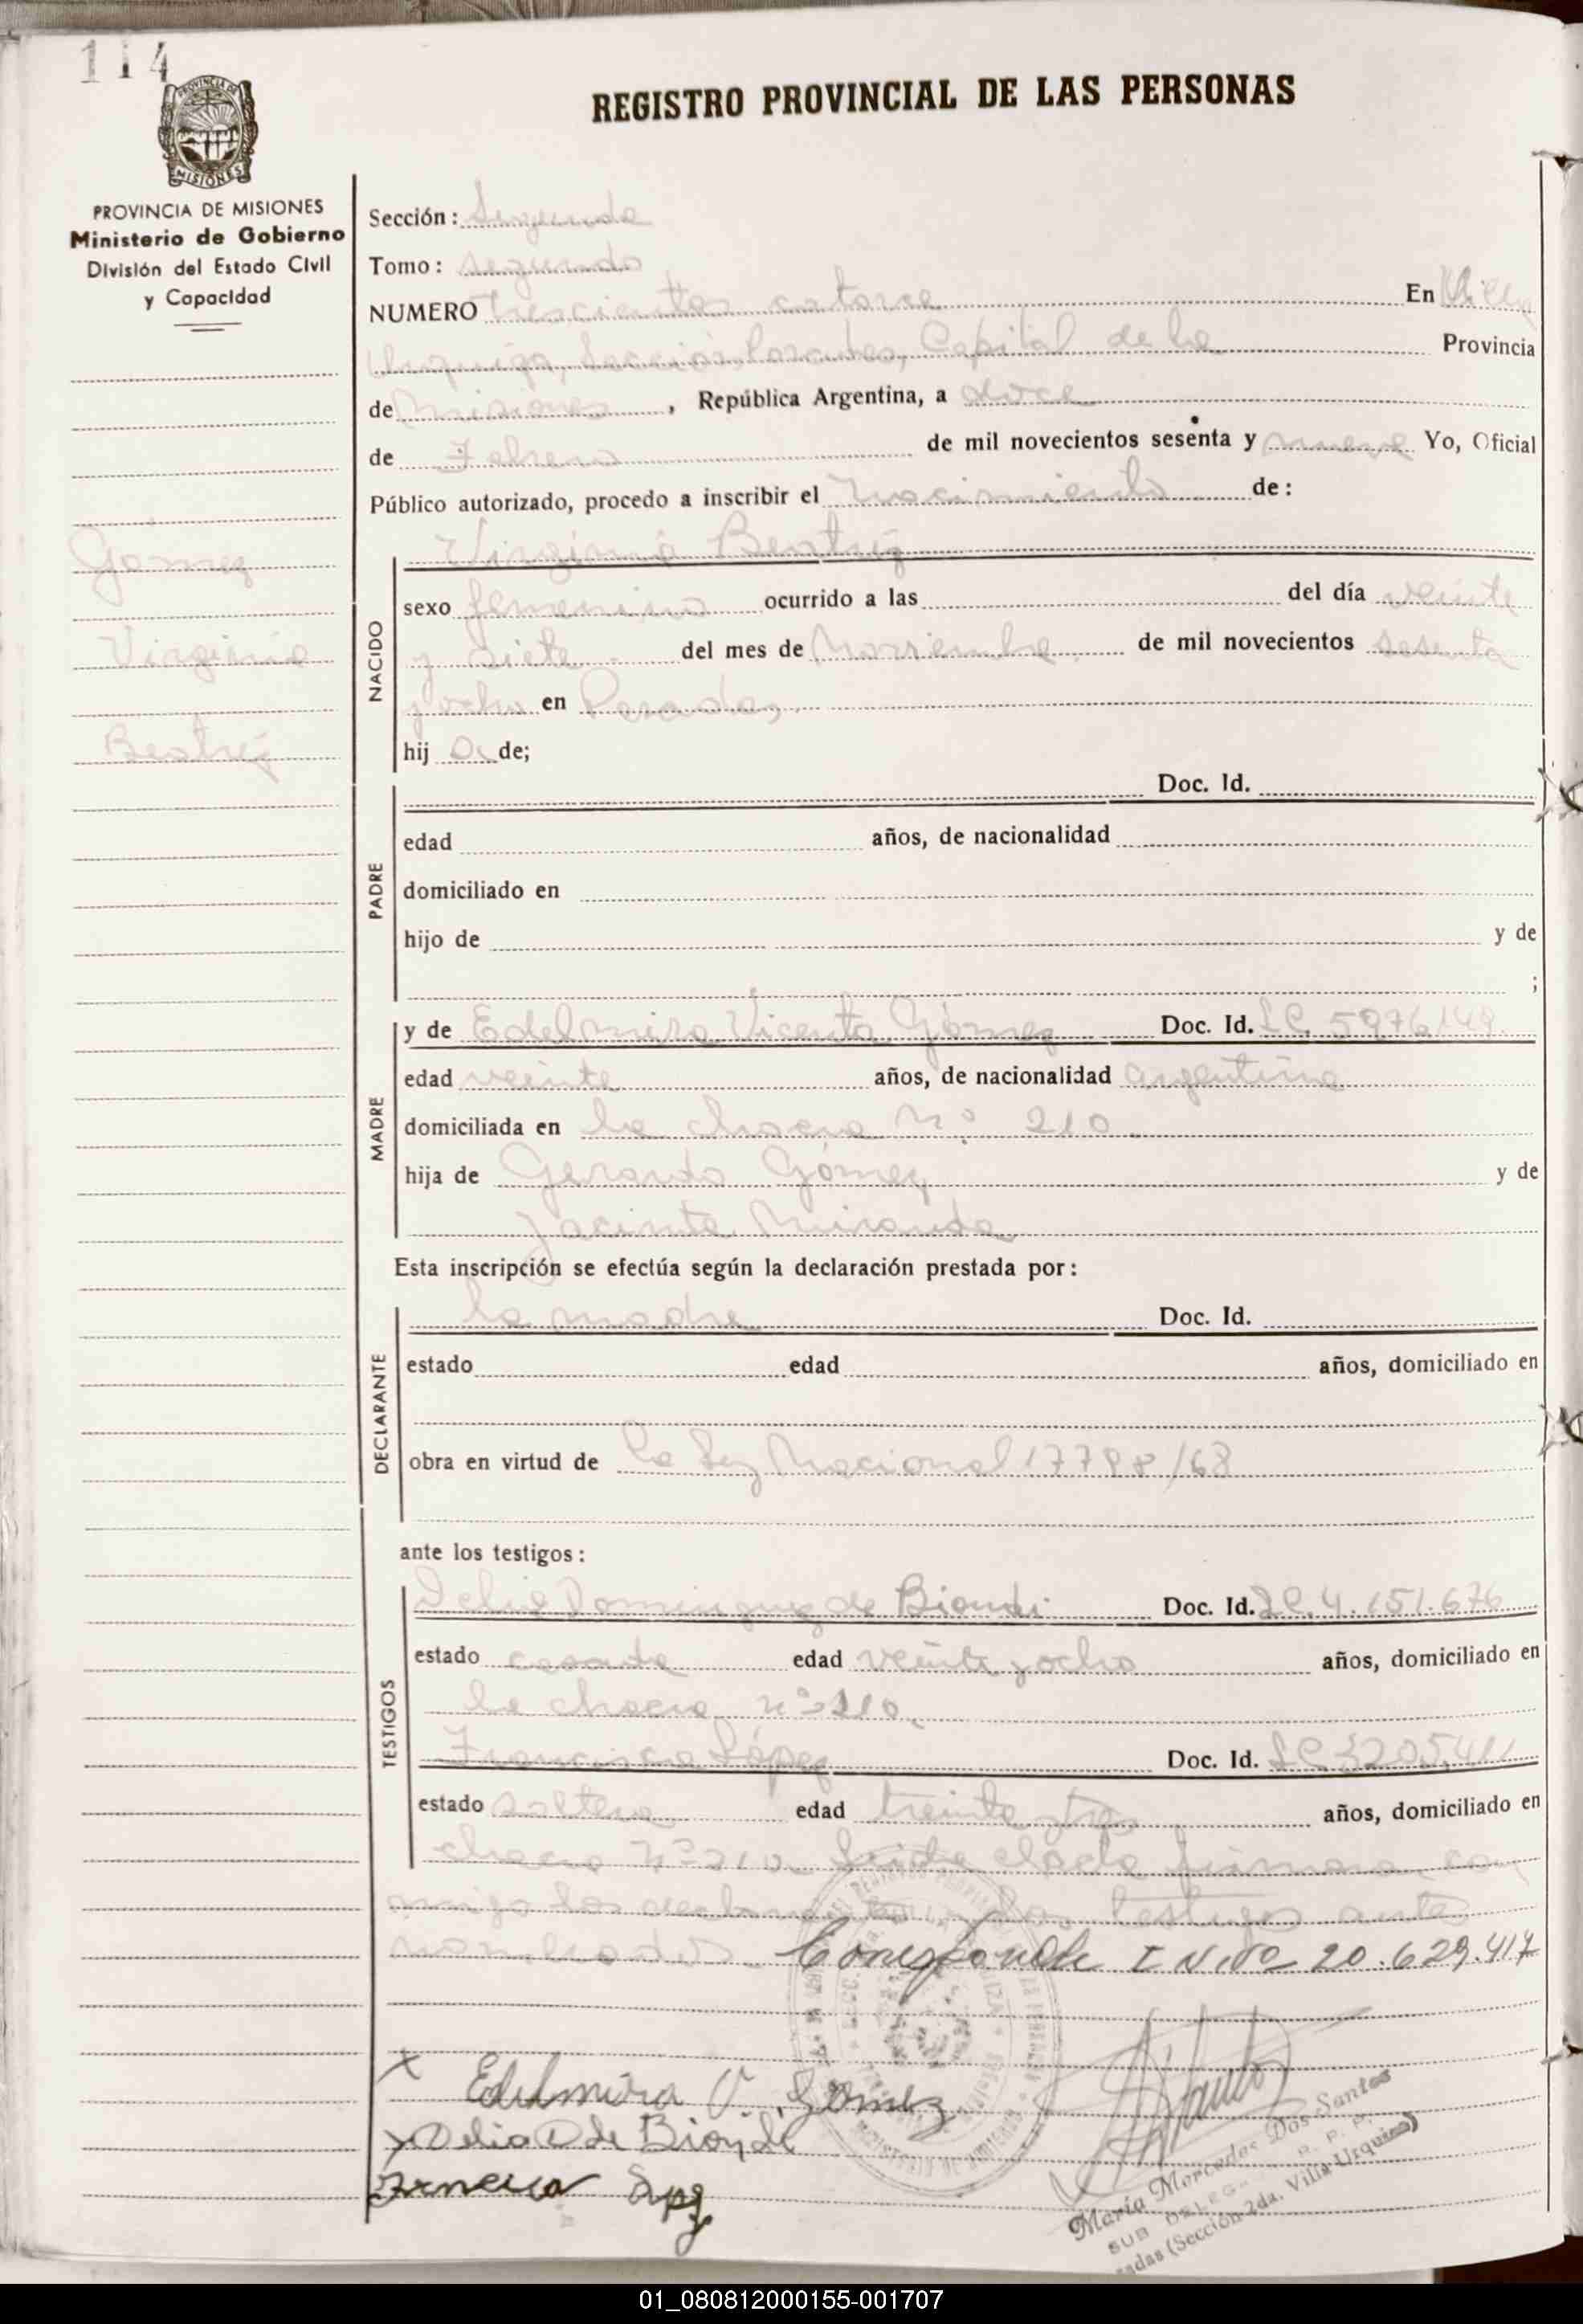 114
REGISTRO PROVINCIAL DE LAS PERSONAS
PROVINCIA DE MISIONES
Ministerio de Gobierno
División del Estado Civil
y Capacidad
Gomez
Virginia
Beatriz
Sección: Segunda
Tomo: Segundo
NUMERO Trescientos catorce En Villa
Urquiza, Sección Posadas, Capital de la Provincia
de Misiones, República Argentina, a doce
de Febrero de mil novecientos sesenta y nueve Yo, Oficial
Público autorizado, procedo a inscribir el Nacimiento de:
NACIDO
Virginia Beatriz
sexo femenino ocurrido a las del día veinte
y siete del mes de Noviembre de mil novecientos sesenta
y ocho en Posadas,
hij a de;
PADRE
Doc. Id.
edad años, de nacionalidad
domiciliado en
hijo de y de
;
MADRE
y de Edelmira Vicenta Gómez Doc. Id. LC. 5976149
edad veinte años, de nacionalidad argentina
domiciliada en la chacra Nº 210
hija de Gerardo Gómez y de
Jacinta Miranda
Esta inscripción se efectúa según la declaración prestada por:
DECLARANTE
la madre Doc. Id.
estado edad años, domiciliado en
obra en virtud de la Ley Nacional 17798/68
ante los testigos:
TESTIGOS
Delia Dominguez de Biondi Doc. Id. LC. 4.151.676
estado casada edad veinte y ocho años, domiciliado en
la chacra nº 210,
Francisca López Doc. Id. LC 3205.411
estado soltera edad treinta y tres años, domiciliado en
chacra Nº 210. Leida el acta firman con
migo los testigos ante
nombrados. Corresponde I N. Nº 20.629.417
x Edelmira V. Gómez
x Delia D de Biondi
Maria Mercedes Dos Santos
SUB DELEG. R. P. P.
adas (Sección 2da. Villa Urquiza)
01_080812000155-001707